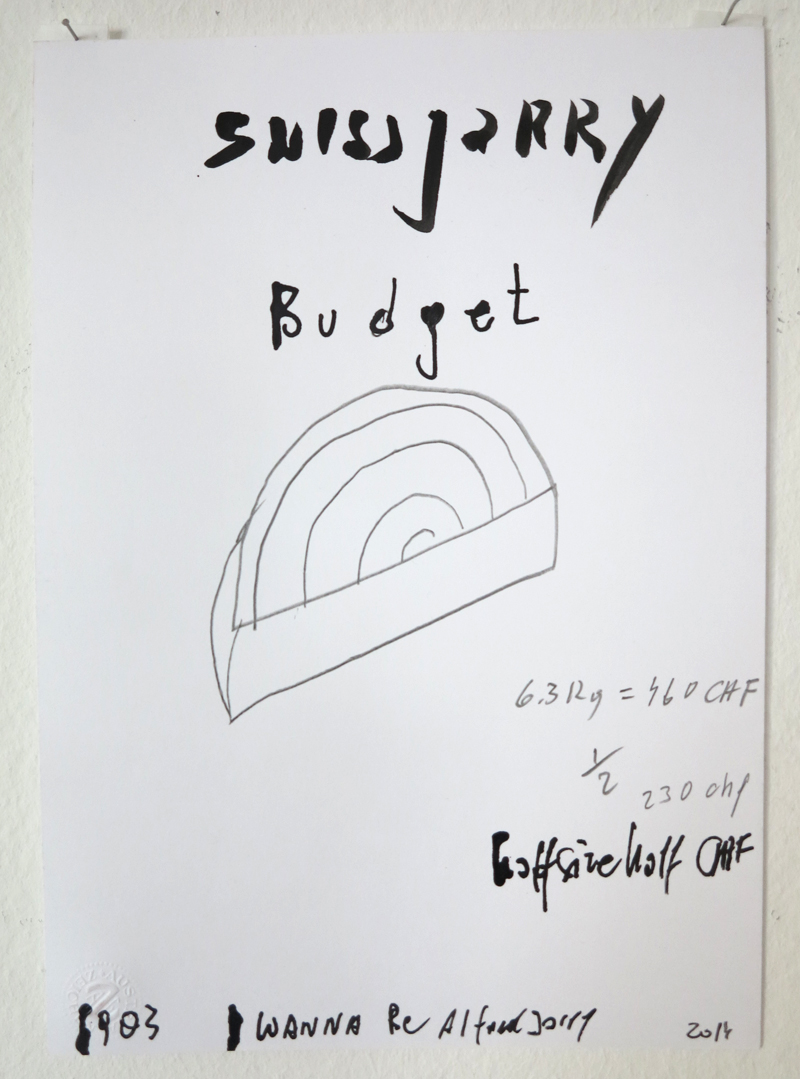 SwissjaRRY
Budget
6.3Kg = 460 CHF
1/2
230 chf
halfsizehalf CHF
1903 I WANNA Be Alfred Jarry 2014